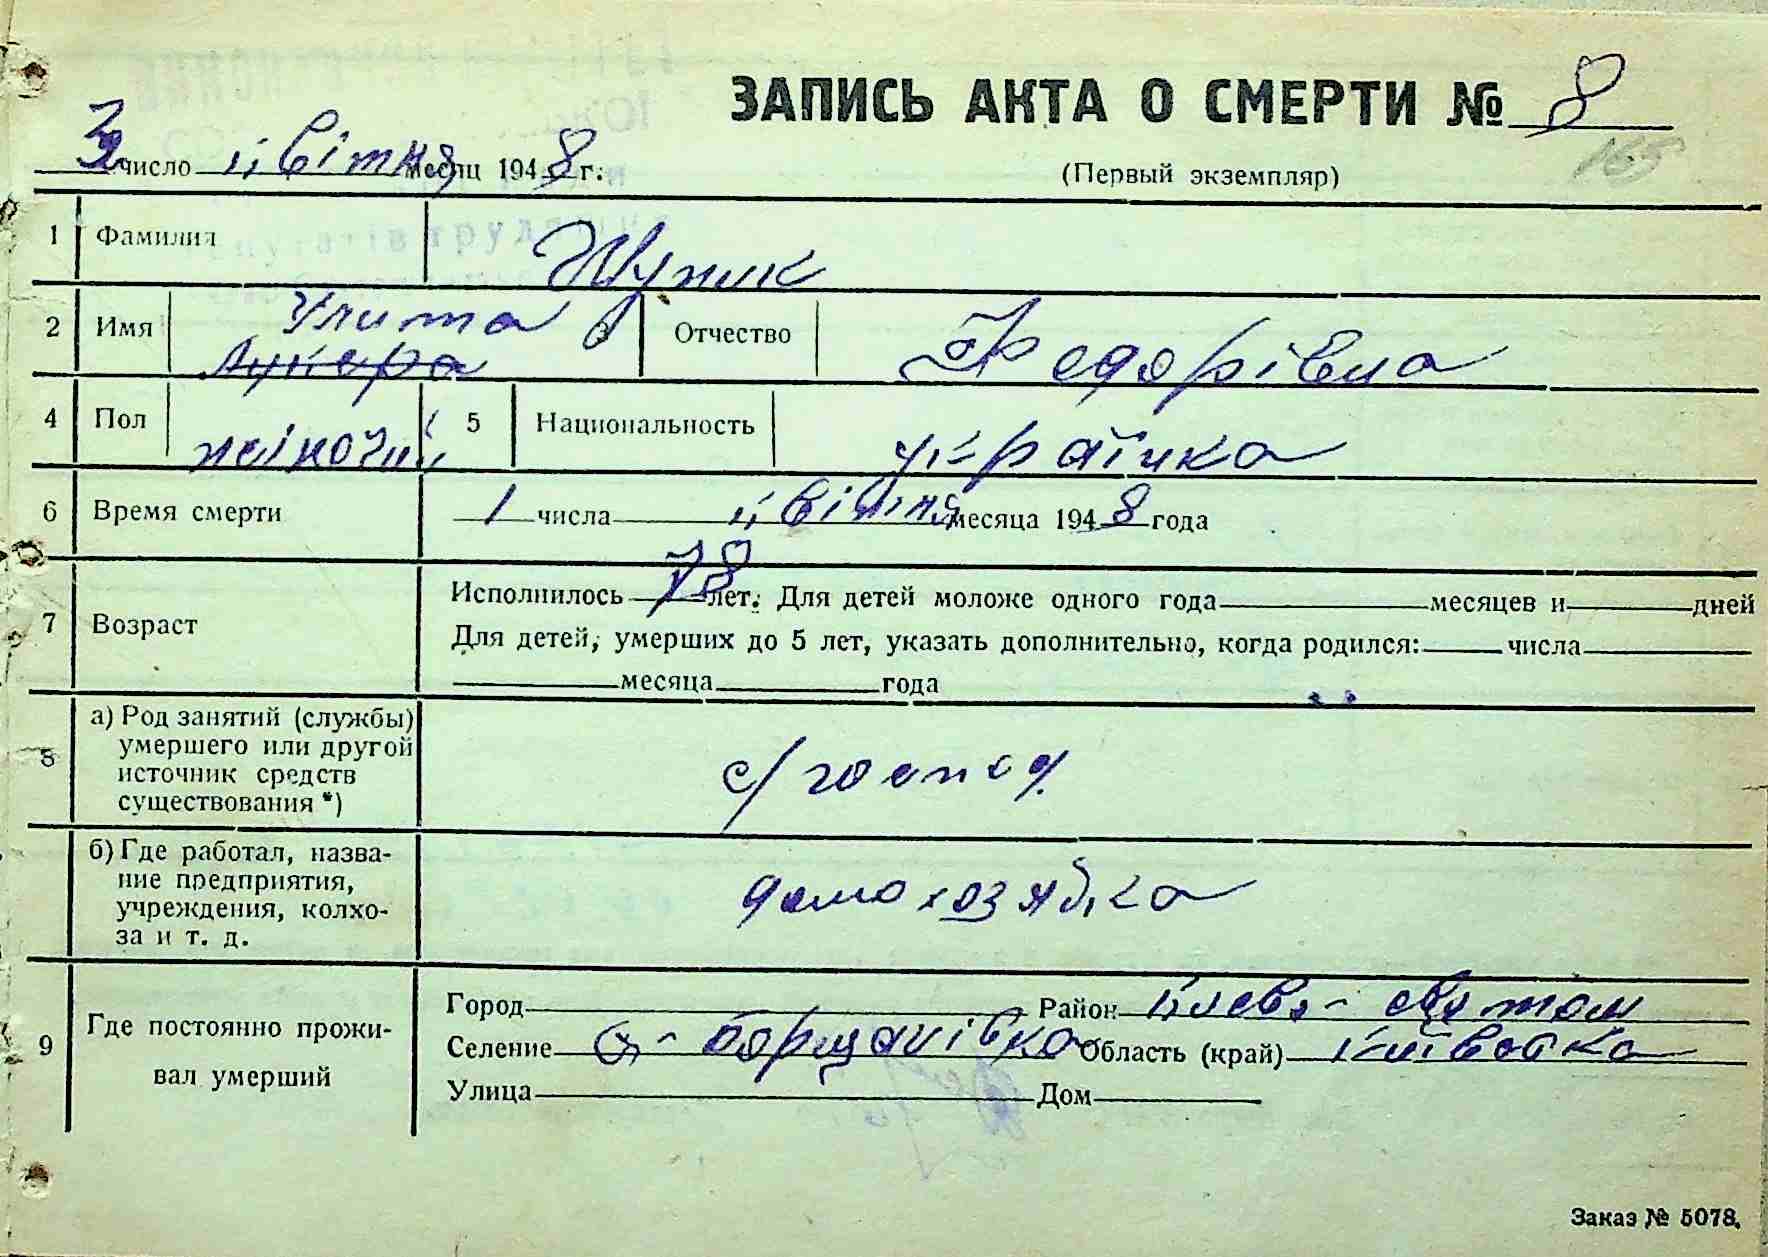 ЗАПИСЬ АКТА О СМЕРТИ № 8
3 число квітня месяц 1948 г.
(Первый экземпляр)
165
1 Фамилия Шупик
2 Имя Улита Отчество Федорівна
4 Пол жіночий 5 Национальность українка
6 Время смерти 1 числа квітня месяца 1948 года
7 Возраст
Исполнилось 78 лет. Для детей моложе одного года месяцев и дней
Для детей, умерших до 5 лет, указать дополнительно, когда родился: числа
месяца года
8 а) Род занятий (службы)
умершего или другой
источник средств
существования *)
с/господ.
б) Где работал, назва-
ние предприятия,
учреждения, колхо-
за и т. д.
домохозяйка
9 Где постоянно прожи-
вал умерший
Город Район Києво-святош
Селение Борщагівка Область (край) Київська
Улица Дом
Заказ № 5078.